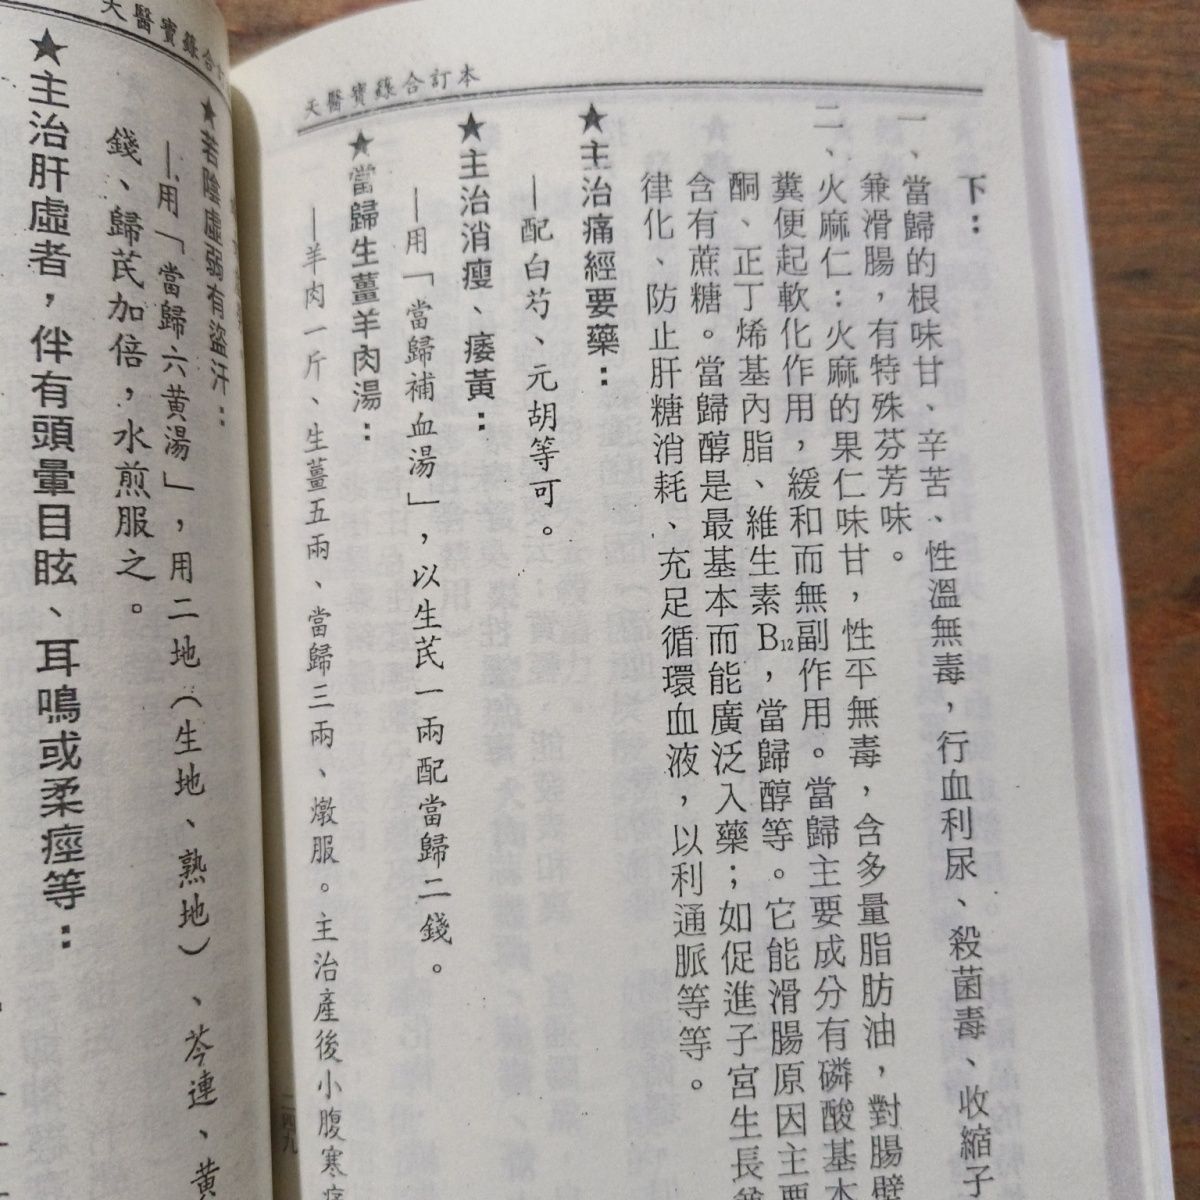 天醫寶籙合訂本
下：
一、當歸的根味甘、辛苦、性溫無毒，行血利尿、殺菌毒、收縮子
兼滑腸，有特殊芬芳味。
二、火麻仁：火麻的果仁味甘，性平無毒，含多量脂肪油，對腸壁
糞便起軟化作用，緩和而無副作用。當歸主要成分有磷酸基本
酮、正丁烯基內脂、維生素B₁₂，當歸醇等。它能滑腸原因主要
含有蔗糖。當歸醇是最基本而能廣泛入藥；如促進子宮生長
律化、防止肝糖消耗、充足循環血液，以利通脈等等。
★主治痛經要藥：
—配白芍、元胡等可。
★主治消瘦、痿黃：
—用「當歸補血湯」，以生芪一兩配當歸二錢。
★當歸生薑羊肉湯：
—羊肉一斤、生薑五兩、當歸三兩、燉服。主治產後小腹寒痛
二四九
天醫寶籙合訂
★若陰虛弱有盜汗：
—用「當歸六黃湯」，用二地（生地、熟地）、芩連、黃
錢、歸芪加倍，水煎服之。
★主治肝虛者，伴有頭暈目眩、耳鳴或柔痙等：